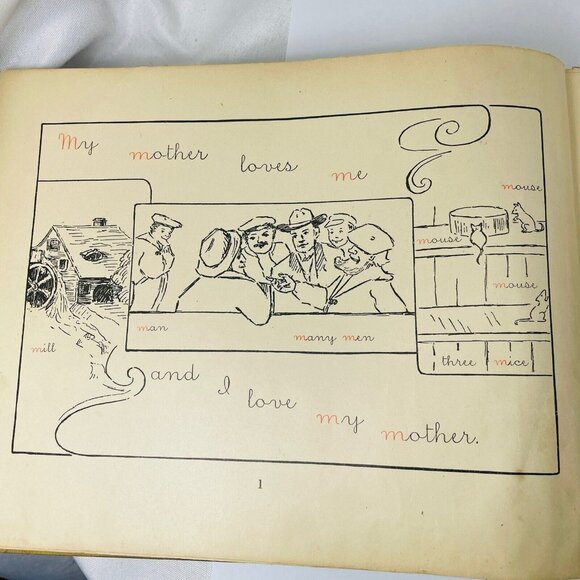 My mother loves me
mouse
mouse
mouse
mill
man
many men
three mice
and I love my mother.
1